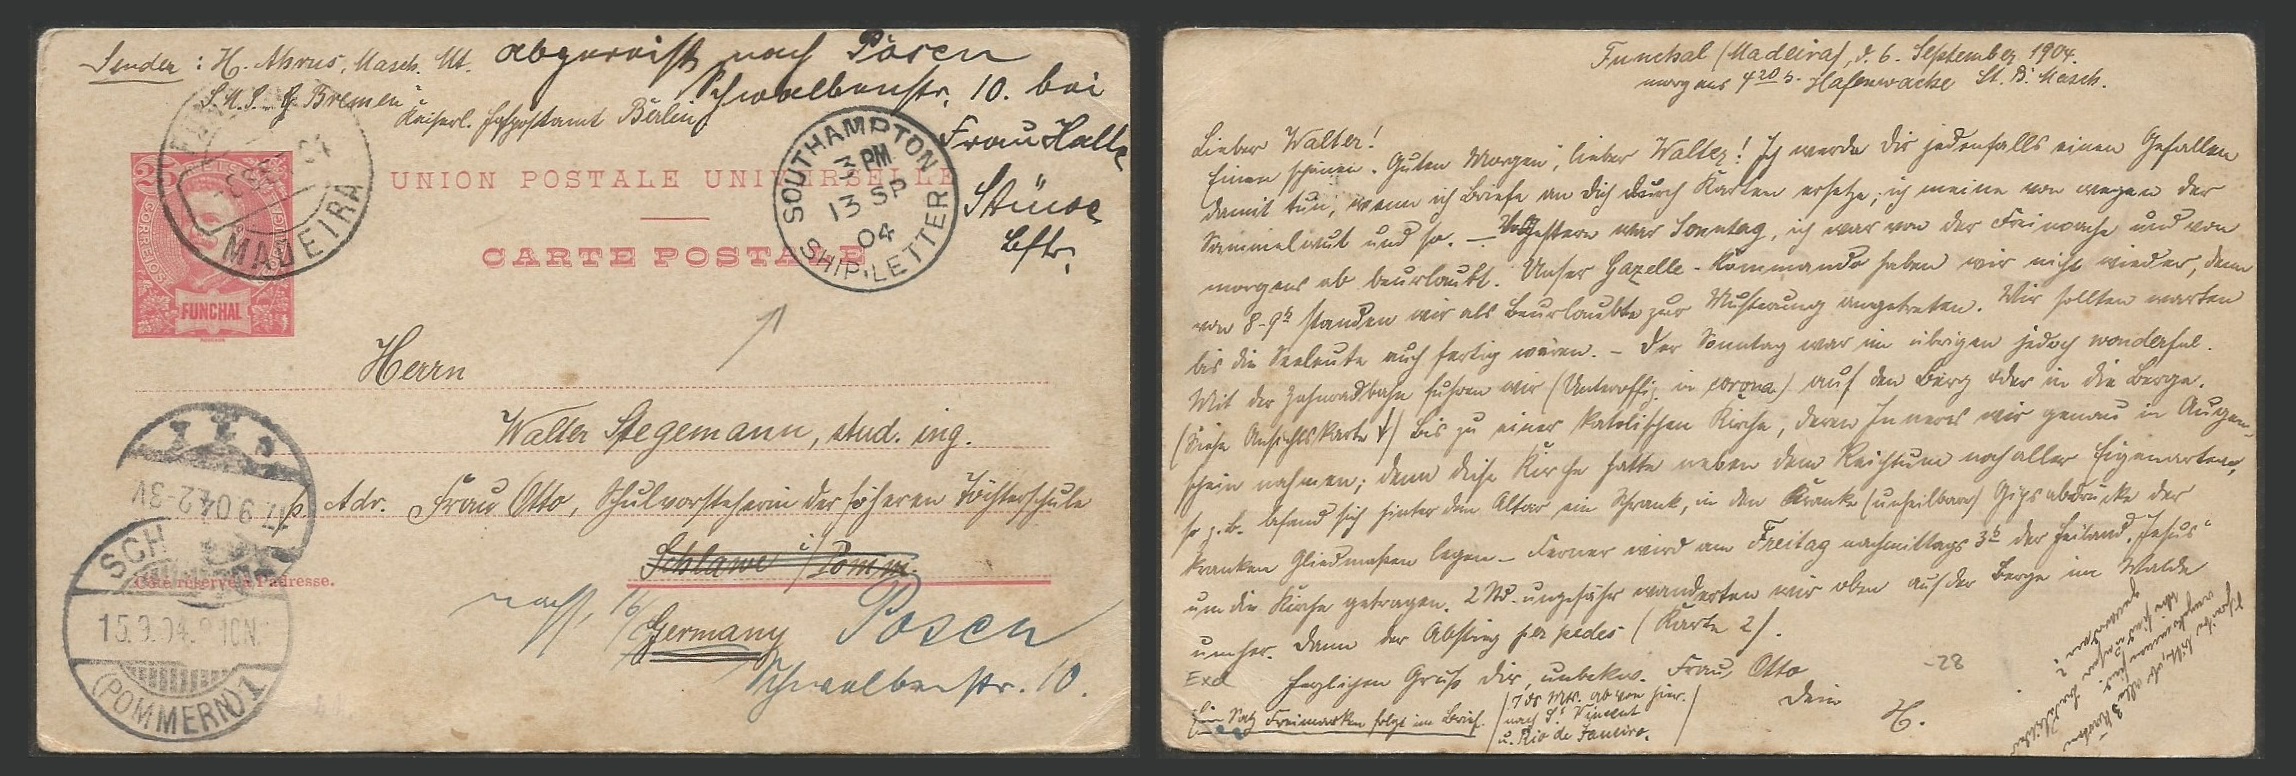 Sender: H. Ahrns, Masch. Mt. abgereist nach Posen
S.M.S. "Bremen" Schwalbenstr. 10. bei
Kaiserl. Hofpostamt Berlin
Frau Halle
Stüwe
MADEIRA
SOUTHAMPTON
3 PM
13 SP
04
SHIP-LETTER
25
CORREIOS
FUNCHAL
UNION POSTALE UNIVERSELLE
CARTE POSTALE
Herrn
Walter Stegemann, stud. ing.
p. Adr. Frau Otto, Schulvorsteherin der höheren Töchterschule
Schlawe i/Pomm.
Côté réservé à l'adresse.
Germany
Posen
Schwalbenstr. 10.
17.9.04.2-3V
SCH
15.9.04.
(POMMERN) 1
Funchal (Madeira), d. 6. September 1904.
morgens 4 20 h. Hafenwache St. B. Masch.
Lieber Walter!
Einen schönen "Guten Morgen", lieber Walter! Ich werde Dir jedenfalls einen Gefallen
damit tun, wenn ich Briefe an Dich durch Karten ersetze, ich meine von wegen der
Sammelwut und so. – Vorgestern war Sonntag, ich war von der Freiwache und von
morgens ab beurlaubt. Unser Gazelle-Kommando haben wir nicht wieder, denn
von 8-9h standen wir als Beurlaubte zur Musterung angetreten. Wir sollten warten
bis die Seeleute auch fertig wären. – Der Sonntag war im übrigen jedoch wonderful.
Mit der Zahnradbahn fuhren wir (Unteroffiz. in corona) auf den Berg oder in die Berge.
(Siehe Ansichtskarte ↓) bis zu einer katolischen Kirche, deren Inneres wir genau in Augen-
schein nahmen; denn diese Kirche hatte neben dem Reichtum noch aller Eigenarten,
so z.B. befand sich hinter dem Altar ein Schrank, in den Kranke (unheilbare) Gipsabdrücke der
kranken Gliedmaßen legen – Ferner wird am Freitag nachmittags 3h der Heiland "Jesus"
um die Kirche getragen. 2 Std. ungefähr wanderten wir oben auf der Berge im Walde
umher. Dann der Abstieg per pedes (Karte 2).
Herzlichen Gruß Dir, unbekw. Frau Otto
Dein
H.
Exd
-28
Ein Satz Freimarken folgt im Brief.
7 ds Mts. ab von hier.
nach St Vincent
u. Rio de Janeiro.